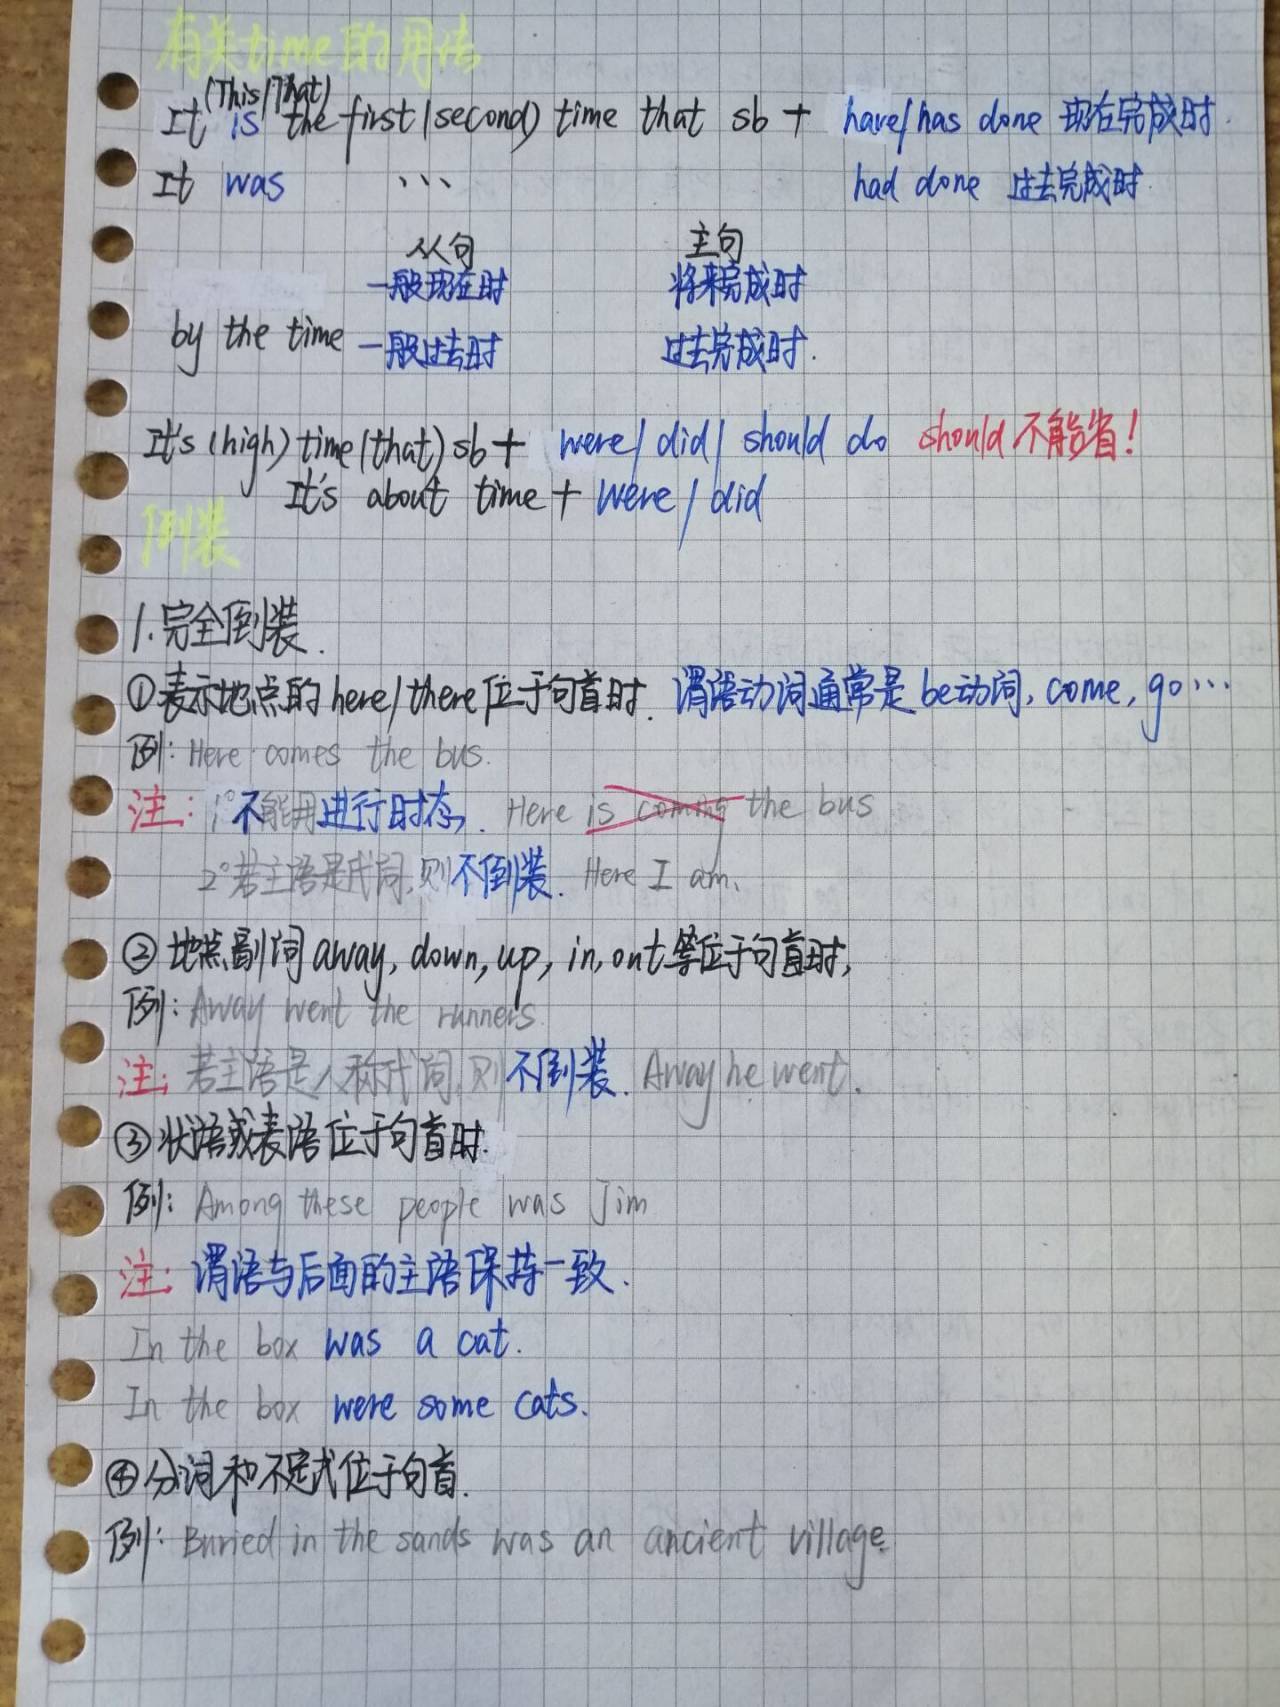 有关time的用法
(This/That)
It is the first(second) time that sb + have/has done 现在完成时.
It was ... had done 过去完成时.
从句 主句
一般现在时 将来完成时
by the time 一般过去时 过去完成时.
It's (high) time (that) sb + were/did/should do should不能省!
It's about time + were/did
倒装
1.完全倒装.
①表示地点的here/there位于句首时. 谓语动词通常是be动词, come, go...
例: Here comes the bus.
注: 1°不能用进行时态. Here is coming the bus
2°若主语是代词,则不倒装. Here I am.
②地点副词away, down, up, in, out等位于句首时,
例: Away went the runners.
注: 若主语是人称代词,则不倒装. Away he went.
③状语或表语位于句首时.
例: Among these people was Jim
注: 谓语与后面的主语保持一致.
In the box was a cat.
In the box were some cats.
④分词和不定式位于句首.
例: Buried in the sands was an ancient village.